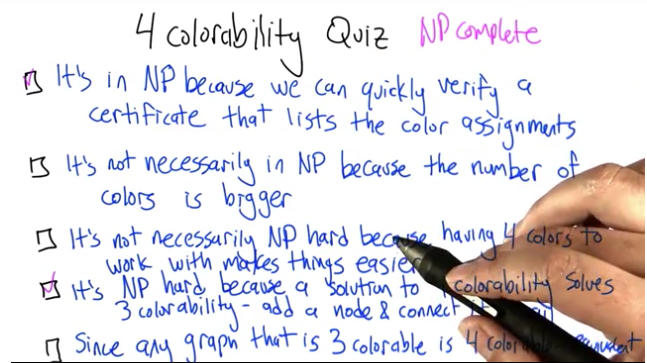 4 colorability Quiz NP complete
It's in NP because we can quickly verify a
certificate that lists the color assignments
It's not necessarily in NP because the number of
colors is bigger
It's not necessarily NP hard because having 4 colors to
work with makes things easier
It's NP hard because a solution to colorability solves
3 colorability - add a node & connect it
Since any graph that is 3 colorable is 4 colorable equivalent